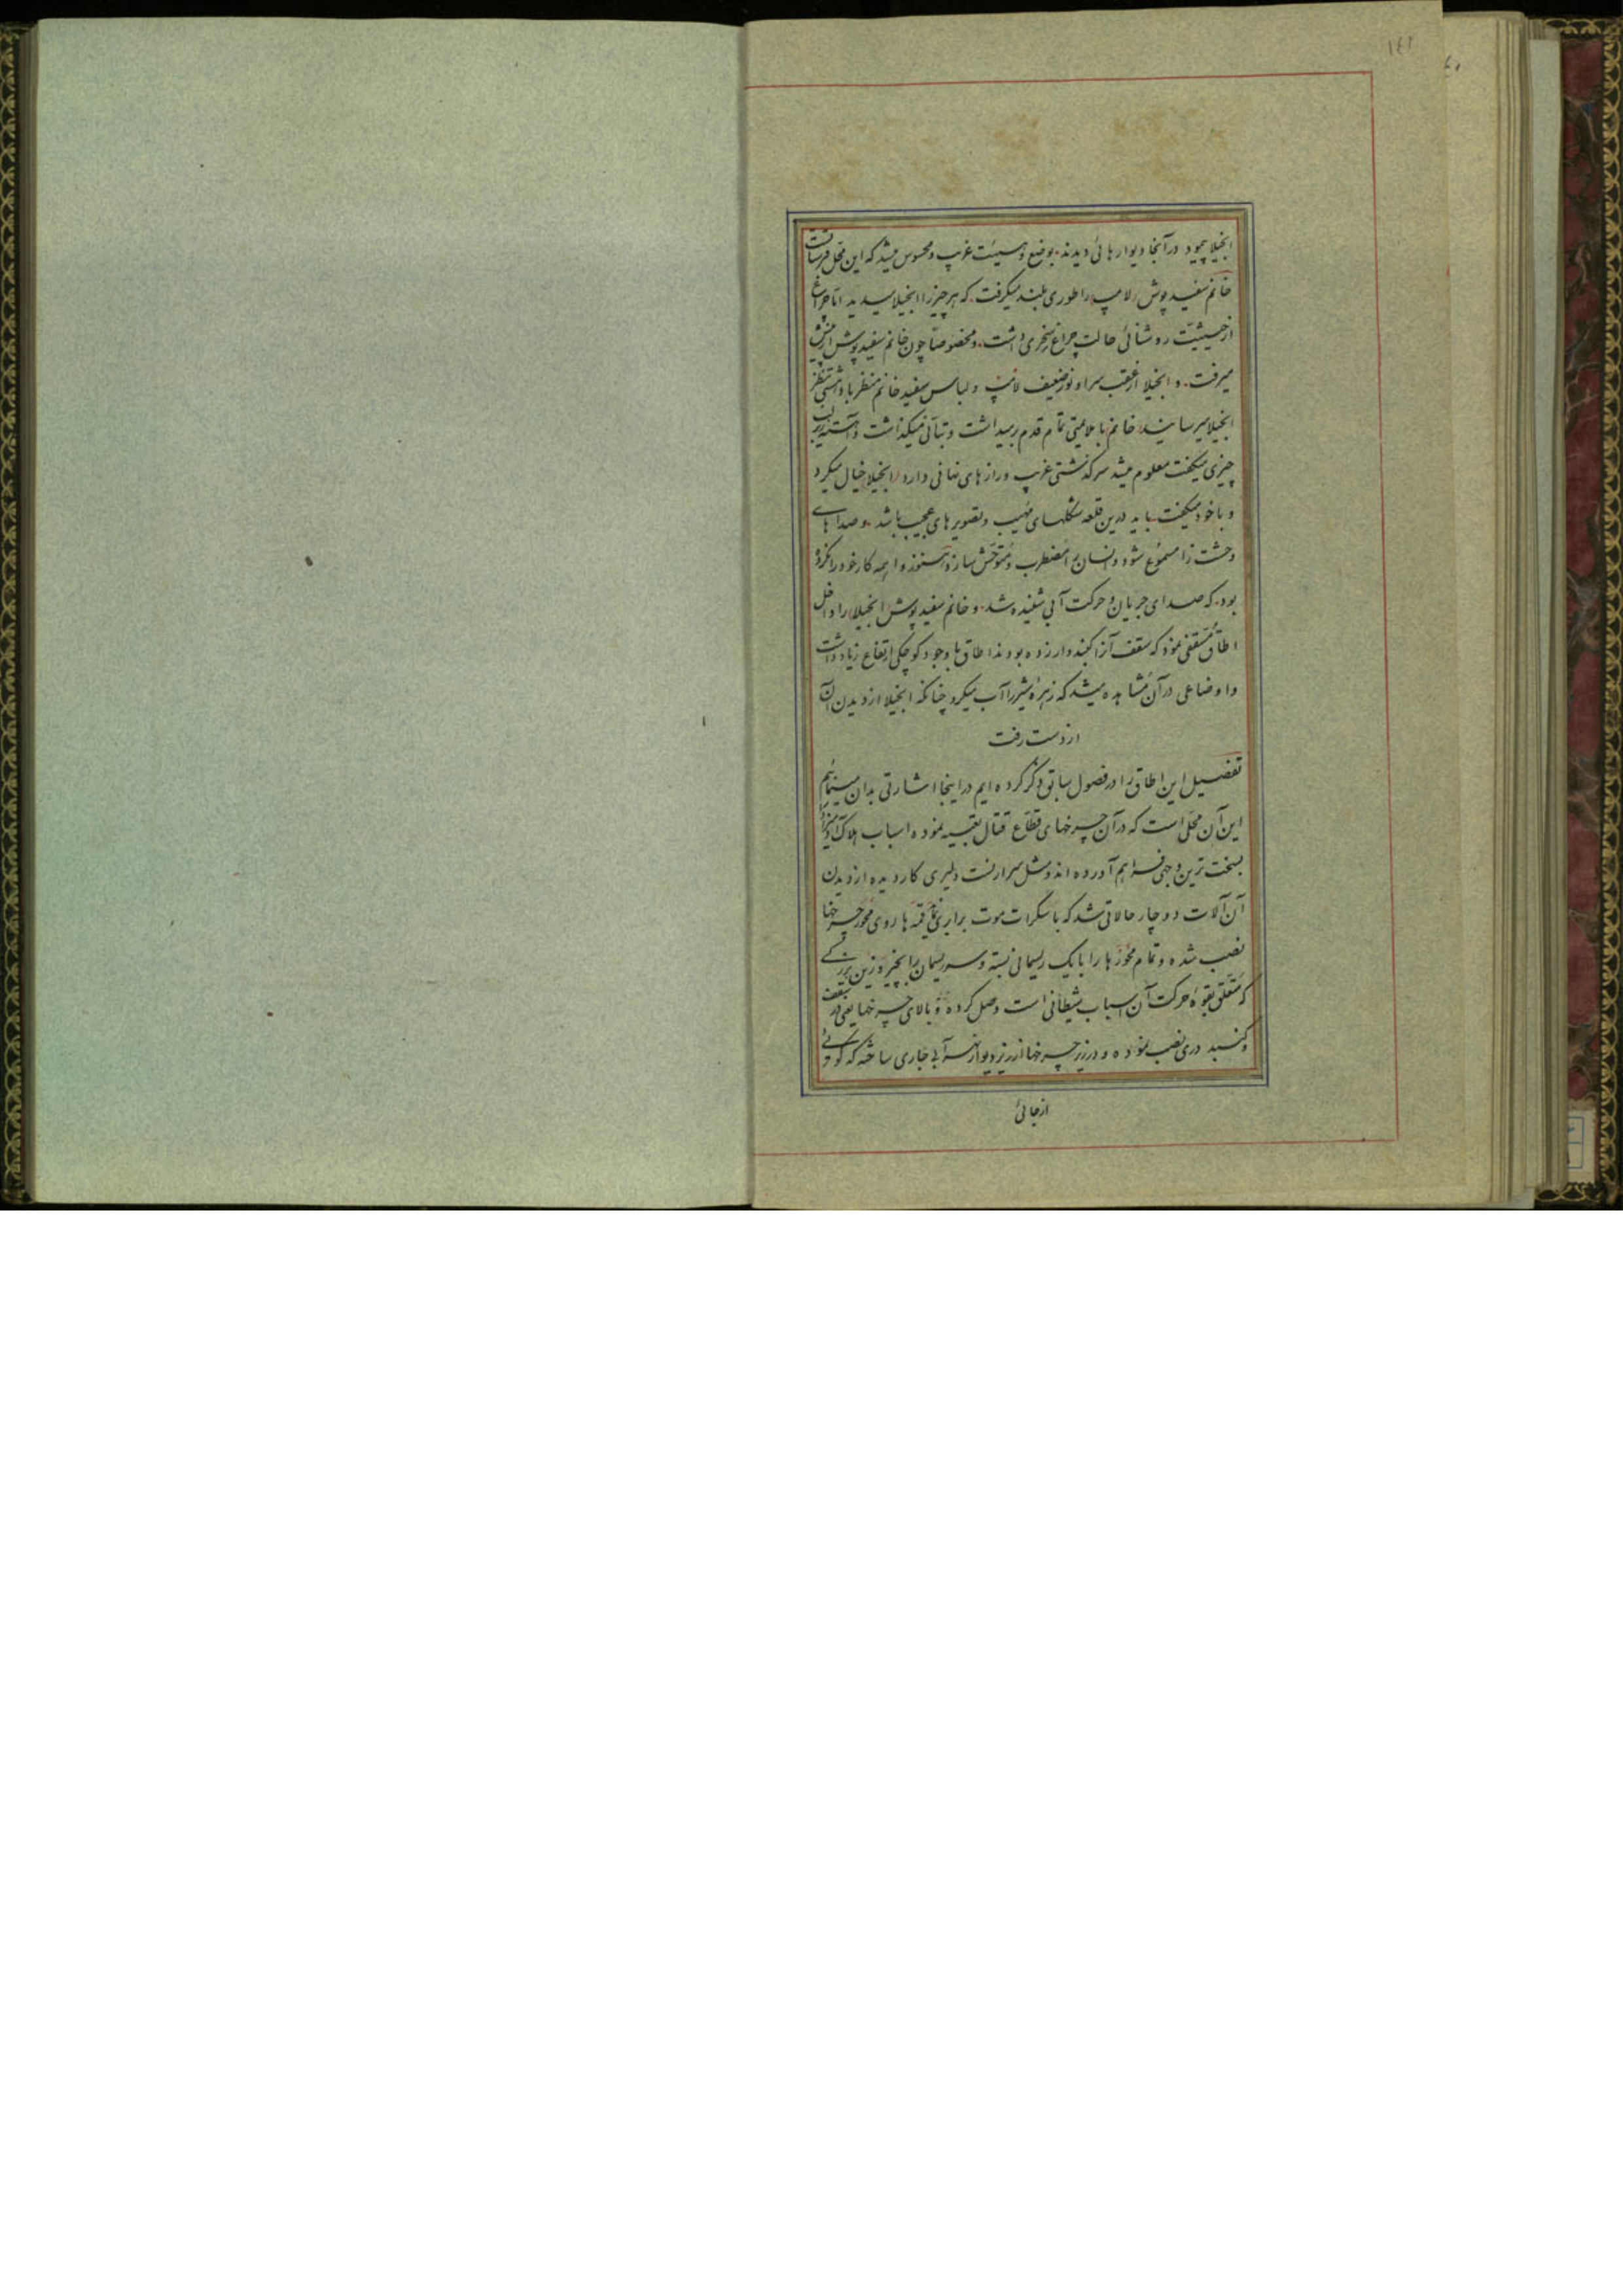 ۱۴۱
انجیلا چمپود در آنجا دیوار هائی دیدند. بوضع و هیئت غریب و محسوس میشد که این محل قبرستانست
خانم سفید پوش لامپ را طوری بلند میگرفت. که هر چیز را انجیلا میدید اما چراغ
از حیثیّت روشنائی حالت چراغ سحری داشت. و مخصوصاً چون خانم سفید پوش از پیش
میرفت. و انجیلا از عقب سر او نور ضعیف لامپ و لباس سفید خانم منظر با دهشتی بنظر
انجیلا میرسانید خانم با ملایمتی تمام قدم برمیداشت و بتأنی میگذاشت و آهسته زیر لب
چیزی میگفت معلوم میشد سرگذشتی غریب و راز های نهانی دارد انجیلا خیال میکرد
و با خود میگفت باید درین قلعه شکلهای مهیب و تصویر های عجیب باشد. و صدا های
وحشت زا مسموع شود و انسان را مضطرب و متوحّش سازد هنوز واهمه کار خود را نکرده
بود. که صدای جریان و حرکت آبی شنیده شد. و خانم سفید پوش انجیلا را داخل
اطاق مسقّفی نمود که سقف آنرا گنبدوار زده بودند اطاق با وجود کوچکی ارتفاع زیاد داشت
و اوضاعی در آن مشاهده میشد که زهرهٔ شیر را آب میکرد چنانکه انجیلا از دیدن آن
از دست رفت
تفصیل این اطاق را در فصول سابق ذکر کرده ایم در اینجا اشارتی بدان مینمائیم
این آن محلّ است که در آن چرخهای قطّاع قتّال تعبیه نموده اسباب هلاک آدمیزاد را
بسخت ترین وجهی فراهم آورده اند و مثل سرارنست دلیری کار دیده از دیدن
آن آلات دوچار حالاتی شد که با سکرات موت برابری نماید قمه ها روی محور چرخها
نصب شده و تمام محورها را با یک ریسمانی بسته و سر ریسمان را بچیز وزین بزرگی
که متعلّق بقوهٔ حرکت آن اسباب شیطانی است وصل کرده و بالای چرخها یعنی در سقف
و گنبد دری نصب نموده و در زیر چرخها از زیر دیوار نهر آبی جاری ساخته که گودی
از جائی